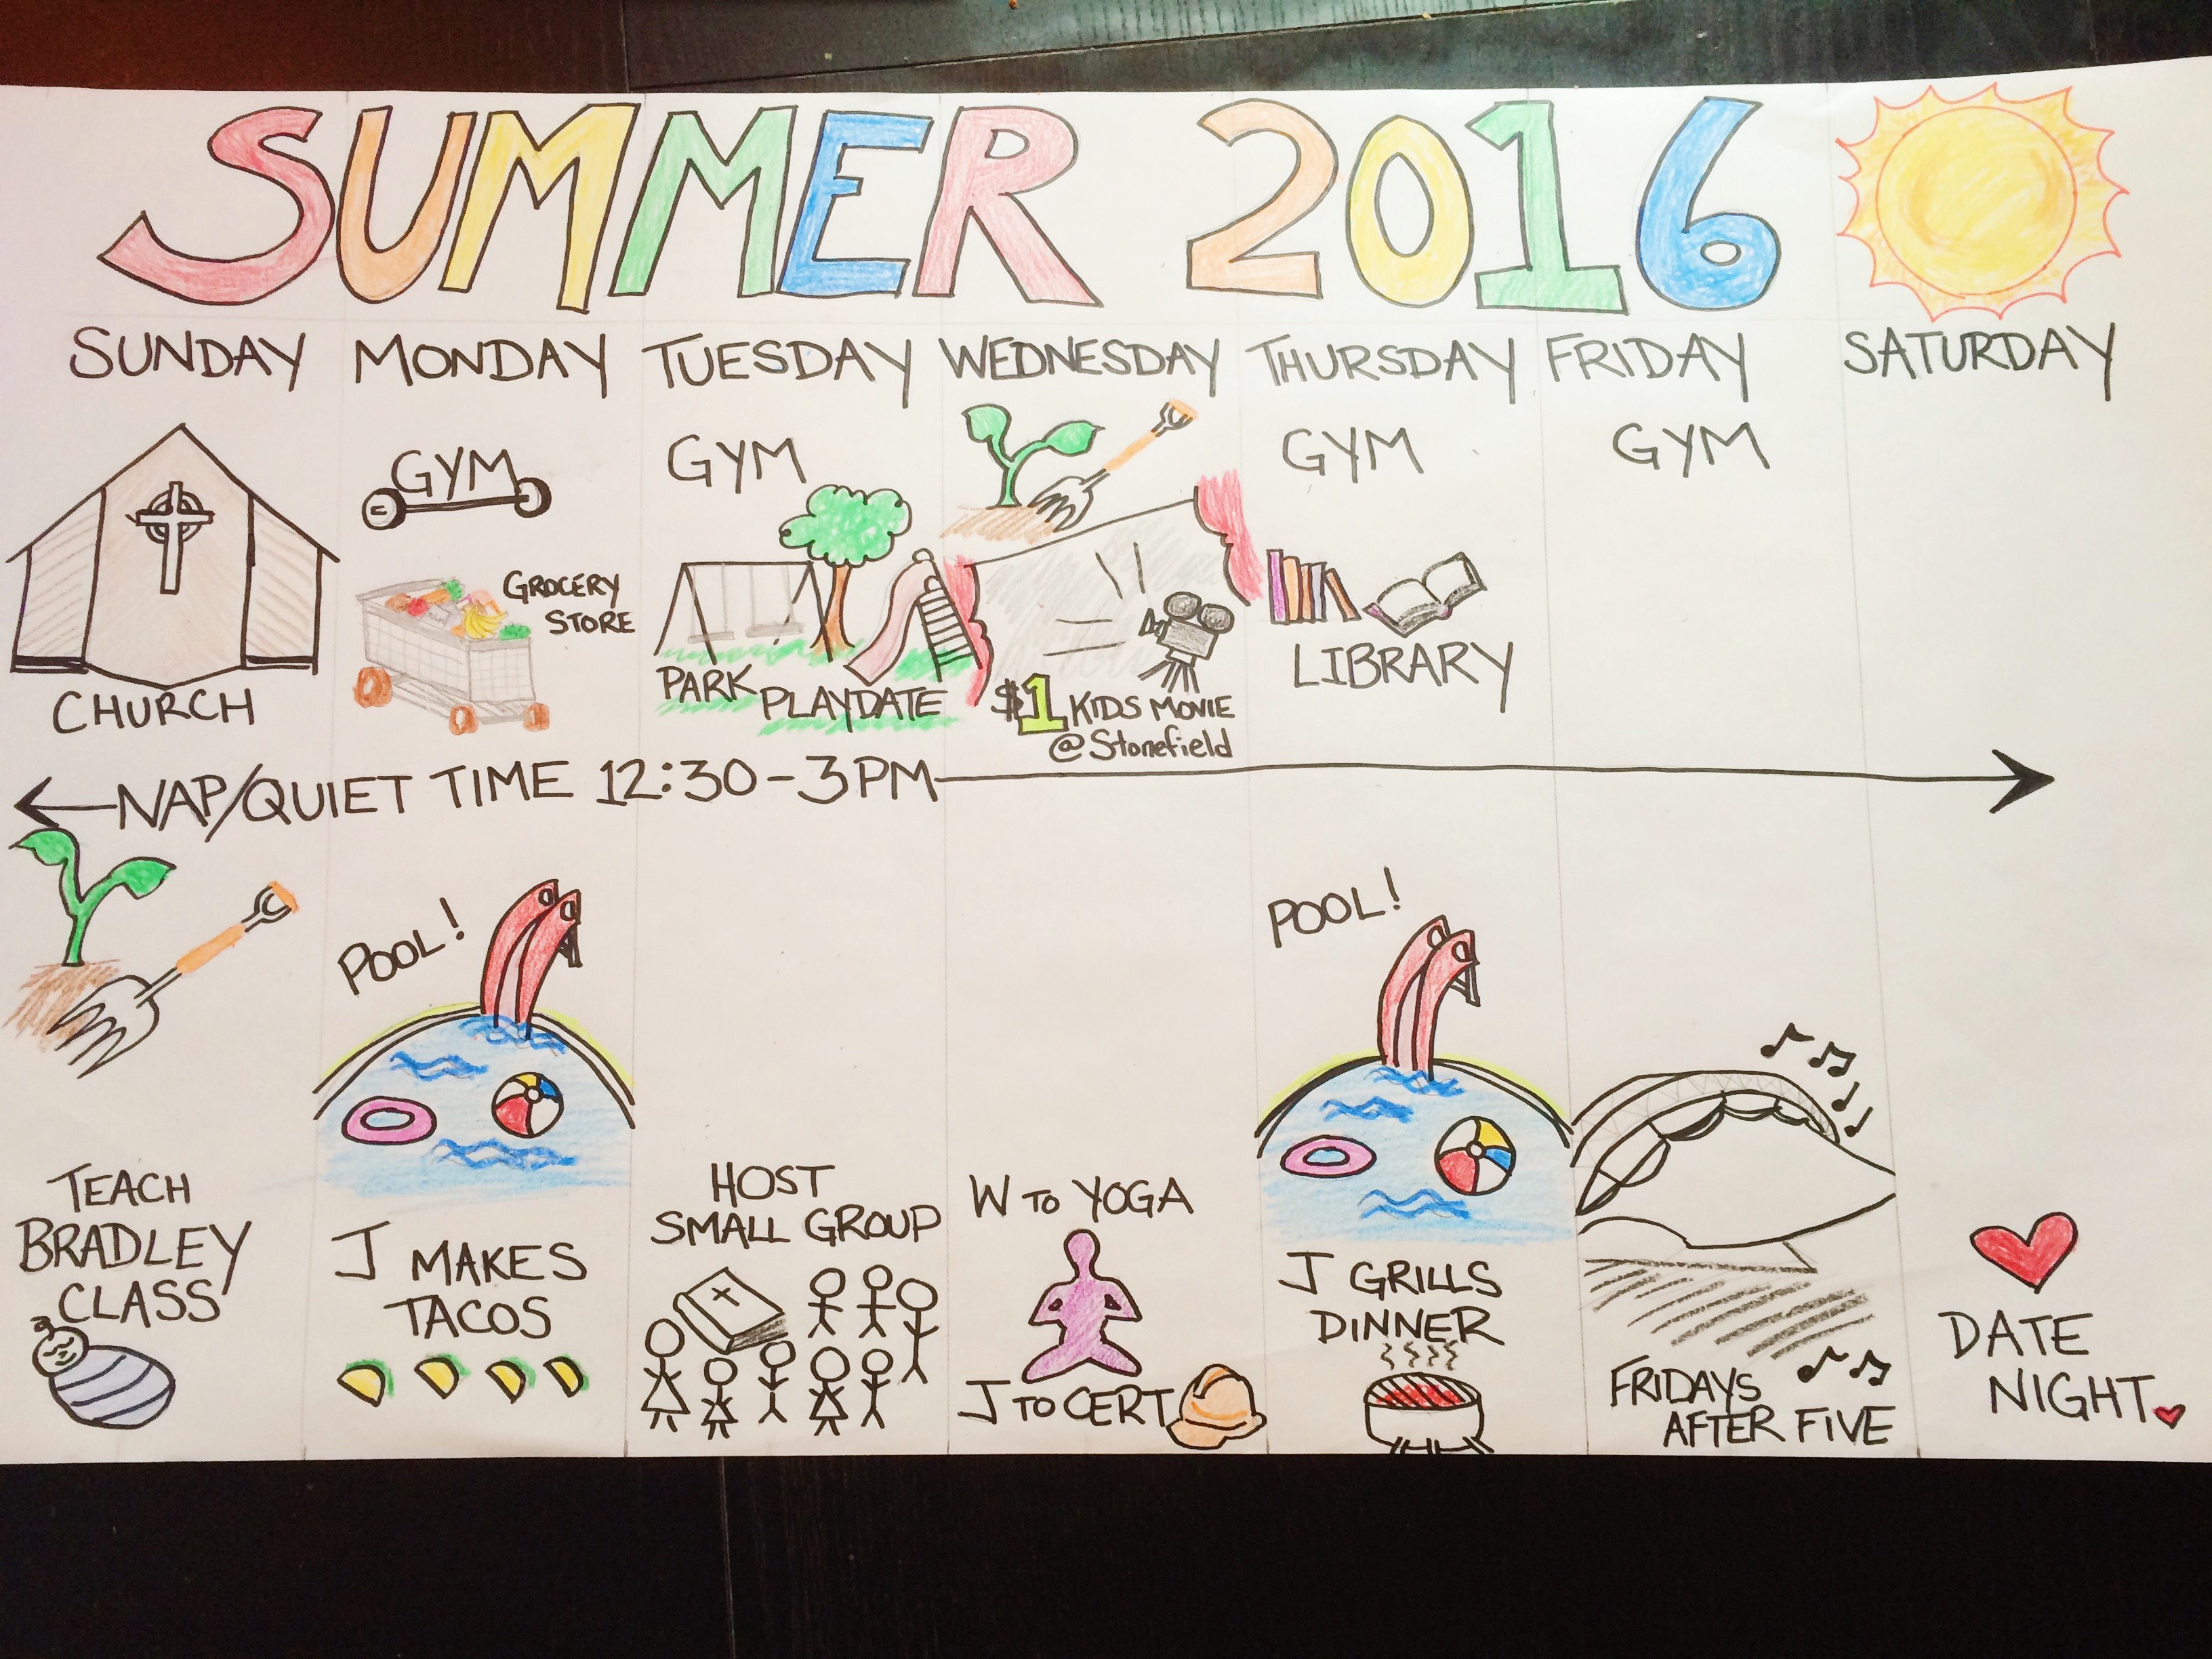 SUMMER 2016
SUNDAY MONDAY TUESDAY WEDNESDAY THURSDAY FRIDAY SATURDAY
GYM GYM GYM GYM
CHURCH
GROCERY
STORE
PARK PLAYDATE
$1 KIDS MOVIE
@ Stonefield
LIBRARY
NAP/QUIET TIME 12:30-3PM
TEACH
BRADLEY
CLASS
POOL!
J MAKES
TACOS
HOST
SMALL GROUP
W TO YOGA
J TO CERT
POOL!
J GRILLS
DINNER
FRIDAYS
AFTER FIVE
DATE
NIGHT